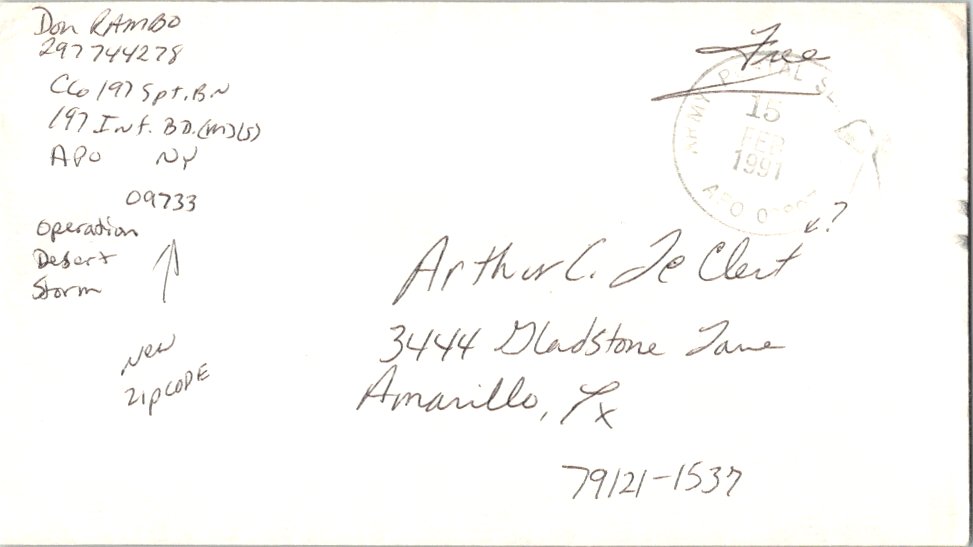 Don RAMBO
297744278
Co 197 Spt. BN
197 Inf. BD. (M)(S)
APO NY
09733
Operation
Desert
Storm
New
ZIPCODE
Free
ARMY POSTAL
15
FEB
1991
APO
?
Arthur C. Le Clert
3444 Gladstone Lane
Amarillo, Tx
79121-1537